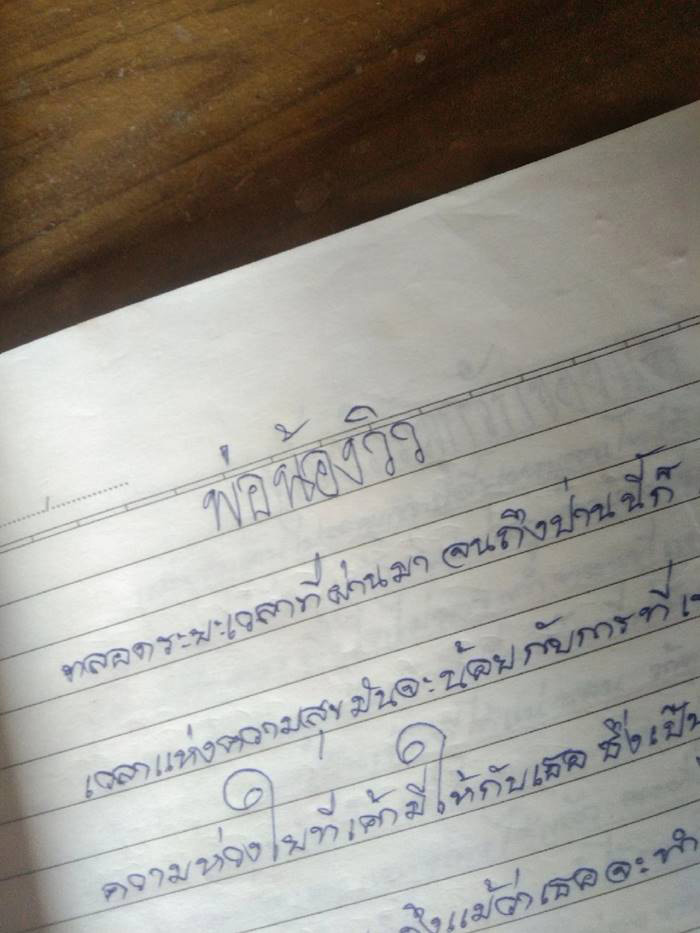 พ่อน้องวิว
ตลอดระยะเวลาที่ผ่านมา จนถึงป่านนี้ก็
เวลาแห่งความสุขมันจะน้อยกับการที่เ
ความห่วงใยที่เค้ามีให้กับเธอ ซึ่งเป็น
ถึงแม้ว่าเธอจะทำ